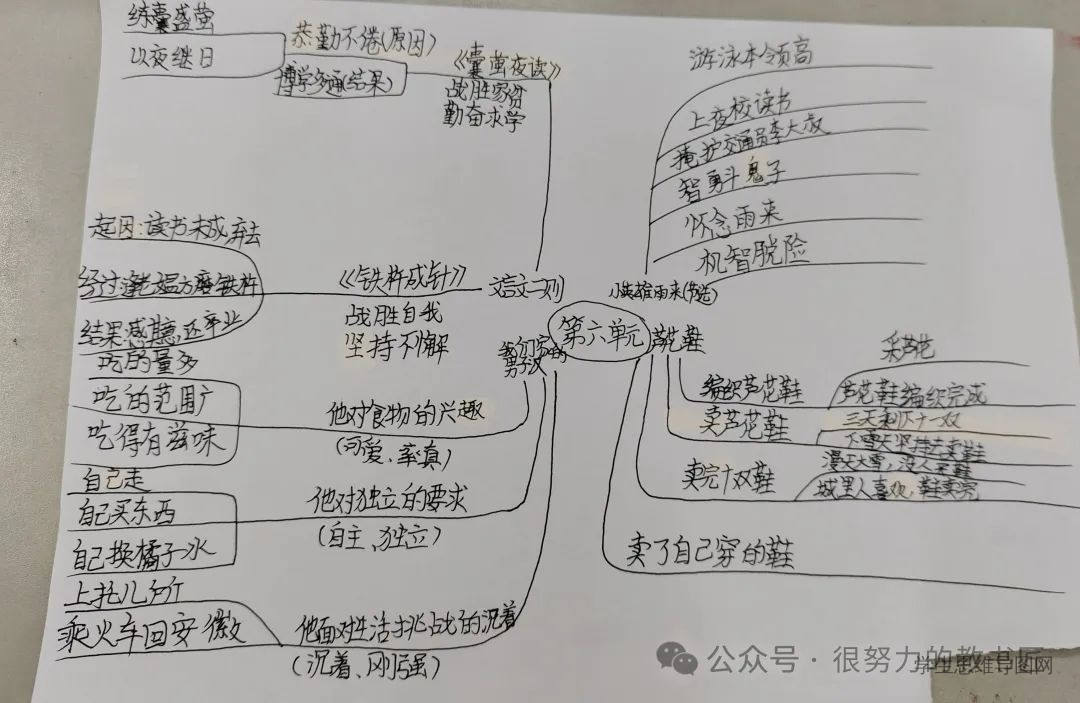 练囊盛萤
以夜继日
恭勤不倦(原因)
博学多通(结果)
《囊萤夜读》
战胜家贫
勤奋求学
起因:读书未成弃去
经过:逢老媪方磨铁杵
结果:感其意,还卒业
《铁杵成针》
战胜自我
坚持不懈
文言文二则
吃的量多
吃的范围广
吃得有滋味
他对食物的兴趣
(可爱、率真)
自己走
自己买东西
自己换橘子水
他对独立的要求
(自主、独立)
上托儿所
乘火车回安徽
他面对生活挑战的沉着
(沉着、刚强)
我们家的
男子汉
第六单元
小英雄雨来(节选)
游泳本领高
上夜校读书
掩护交通员李大叔
智勇斗鬼子
怀念雨来
机智脱险
芦花鞋
编织芦花鞋
采芦花
芦花鞋编织完成
卖芦花鞋
三天剩下十一双
下雪天坚持去卖鞋
卖完十双鞋
漫天大雪,没人买鞋
城里人喜欢,鞋卖完
卖了自己穿的鞋
公众号·很努力的教书匠
学生思维导图网